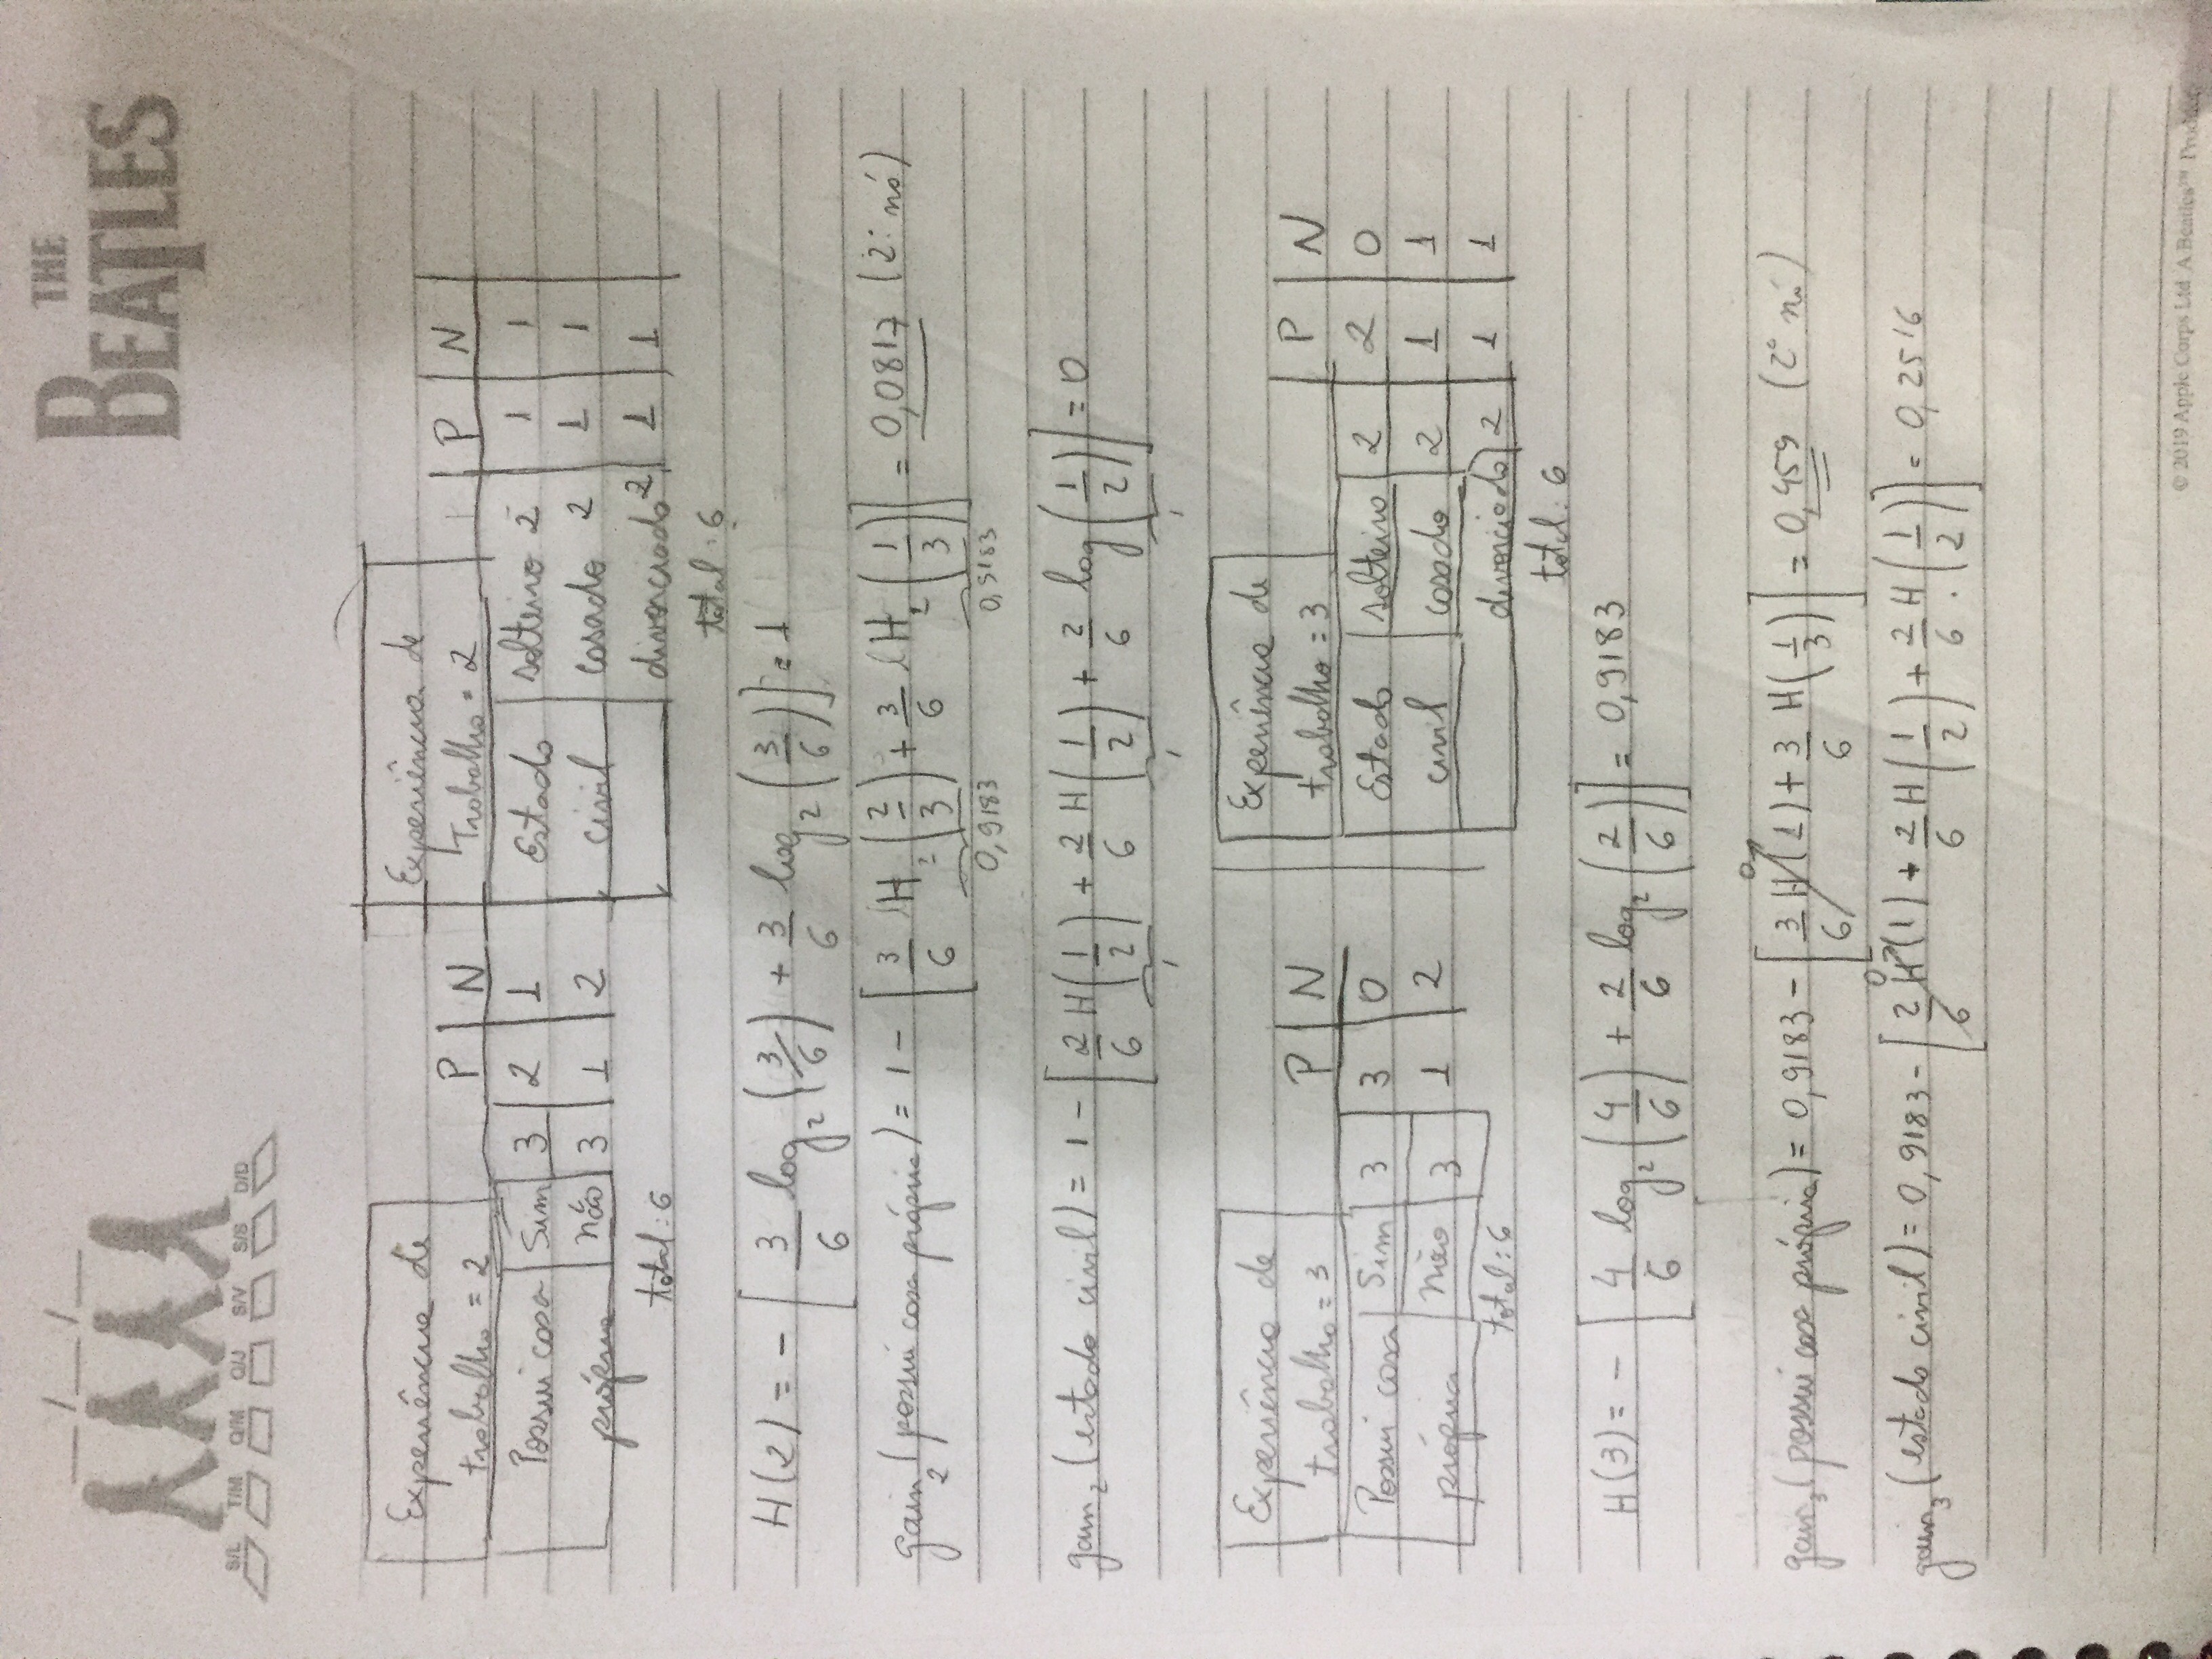 __/__/__
THE
BEATLES
S/L T/M Q/M Q/J S/V S/S D/D
Experiência de
trabalho = 2 P N
Possui casa Sim 3 2 1
própria não 3 1 2
total: 6
Experiência de
Trabalho = 2 P N
Estado solteiro 2 1 1
civil casado 2 1 1
divorciado 2 1 1
total: 6
H(2) = - [3/6 log₂(3/6) + 3/6 log₂(3/6)] = 1
gain₂(possui casa própria) = 1 - [3/6 H₂(2/3) + 3/6 H₂(1/3)] = 0,0817 (2º nó)
0,9183 0,9183
gain₂(estado civil) = 1 - [2/6 H(1/2) + 2/6 H(1/2) + 2/6 log(1/2)] = 0
1 1 1
Experiência de
trabalho = 3 P N
Possui casa Sim 3 3 0
própria Não 3 1 2
total: 6
Experiência de
trabalho = 3 P N
Estado solteiro 2 2 0
civil casado 2 1 1
divorciado 2 1 1
total: 6
H(3) = - [4/6 log₂(4/6) + 2/6 log₂(2/6)] = 0,9183
0
gain₃(possui casa própria) = 0,9183 - [3/6 H(1) + 3/6 H(1/3)] = 0,459 (2º nó)
0
gain₃(estado civil) = 0,9183 - [2/6 H(1) + 2/6 H(1/2) + 2/6 H(1/2)] = 0,2516
© 2019 Apple Corps Ltd A Beatles™ Product